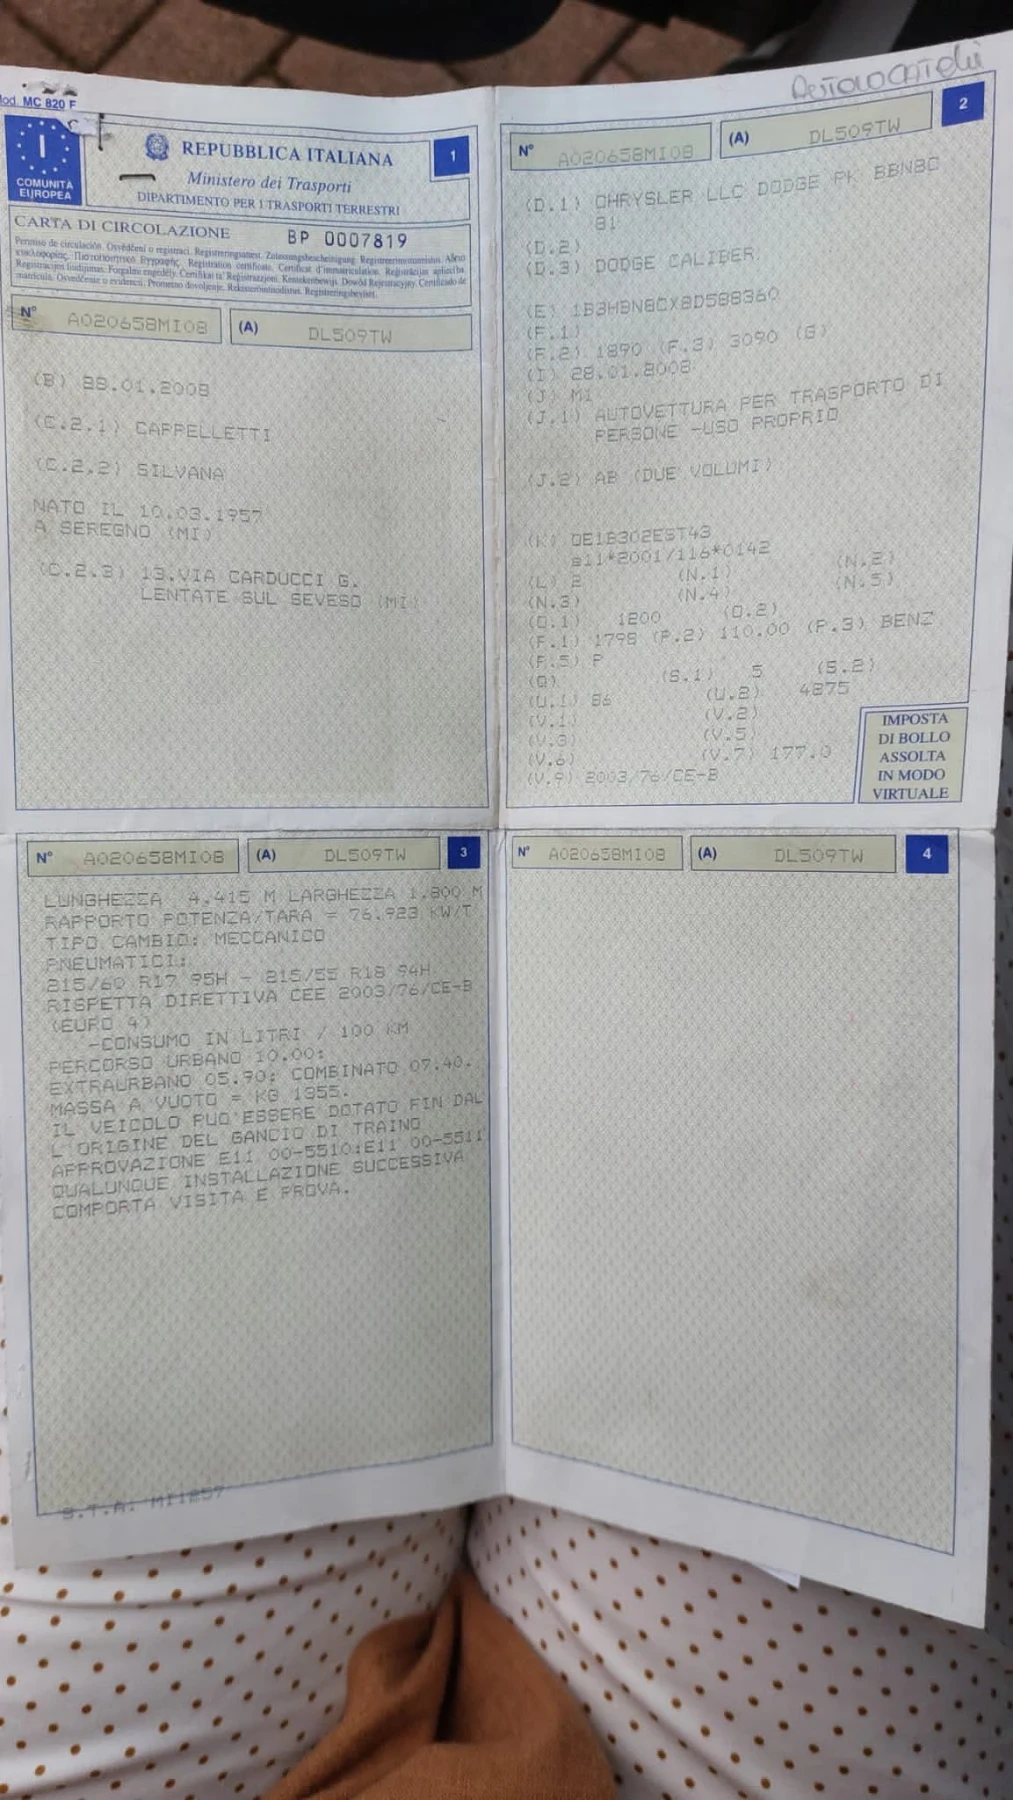 Mod. MC 820 F
I
COMUNITÀ
EUROPEA
REPUBBLICA ITALIANA
Ministero dei Trasporti
DIPARTIMENTO PER I TRASPORTI TERRESTRI
1
CARTA DI CIRCOLAZIONE BP 0007819
Permiso de circulación. Osvědčení o registraci. Registreringsattest. Zulassungsbescheinigung. Registreerimistunnistus. Άδεια
κυκλοφορίας. Πιστοποιητικό Εγγραφής. Registration certificate. Certificat d'immatriculation. Reģistrācijas apliecība.
Registracijos liudijimas. Forgalmi engedély. Ċertifikat ta' Reġistrazzjoni. Kentekenbewijs. Dowód Rejestracyjny. Certificado de
matrícula. Osvedčenie o evidencii. Prometno dovoljenje. Rekisteröintitodistus. Registreringsbeviset.
N° A020658MI08 (A) DL509TW
(B) 28.01.2008
(C.2.1) CAPPELLETTI
(C.2.2) SILVANA
NATO IL 10.03.1957
A SEREGNO (MI)
(C.2.3) 13.VIA CARDUCCI G.
LENTATE SUL SEVESO (MI)
2
N° A020658MI08 (A) DL509TW
(D.1) CHRYSLER LLC DODGE PK BBN8C
81
(D.2)
(D.3) DODGE CALIBER
(E) 1B3HBN8CX8D588360
(F.1)
(F.2) 1890 (F.3) 3090 (G)
(I) 28.01.2008
(J) M1
(J.1) AUTOVETTURA PER TRASPORTO DI
PERSONE -USO PROPRIO
(J.2) AB (DUE VOLUMI)
(K) OE1B302EST43
e11*2001/116*0142
(L) 2 (N.1) (N.2)
(N.3) (N.4) (N.5)
(O.1) 1200 (O.2)
(P.1) 1798 (P.2) 110.00 (P.3) BENZ
(P.5) P
(Q) (S.1) 5 (S.2)
(U.1) 86 (U.2) 4875
(V.1) (V.2)
(V.3) (V.5)
(V.6) (V.7) 177.0
(V.9) 2003/76/CE-B
IMPOSTA
DI BOLLO
ASSOLTA
IN MODO
VIRTUALE
N° A020658MI08 (A) DL509TW 3
LUNGHEZZA 4.415 M LARGHEZZA 1.800 M
RAPPORTO POTENZA/TARA = 76.923 KW/T
TIPO CAMBIO: MECCANICO
PNEUMATICI:
215/60 R17 95H - 215/55 R18 94H
RISPETTA DIRETTIVA CEE 2003/76/CE-B
(EURO 4)
-CONSUMO IN LITRI / 100 KM
PERCORSO URBANO 10.00;
EXTRAURBANO 05.90; COMBINATO 07.40.
MASSA A VUOTO = KG 1355.
IL VEICOLO PUO'ESSERE DOTATO FIN DAL
L'ORIGINE DEL GANCIO DI TRAINO
APPROVAZIONE E11 00-5510;E11 00-5511
QUALUNQUE INSTALLAZIONE SUCCESSIVA
COMPORTA VISITA E PROVA.
S.T.A. MI1257
N° A020658MI08 (A) DL509TW 4